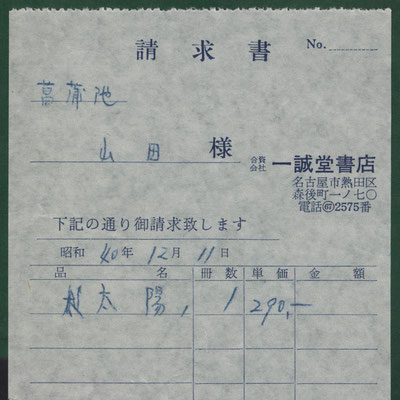 請求書
No.
菖蒲池
山田 様
合資会社 一誠堂書店
名古屋市熱田区
森後町一ノ七〇
電話㊵2575番
下記の通り御請求致します
昭和 40年 12月 11日
品名 冊数 単価 金額
太陽, 1 290,—